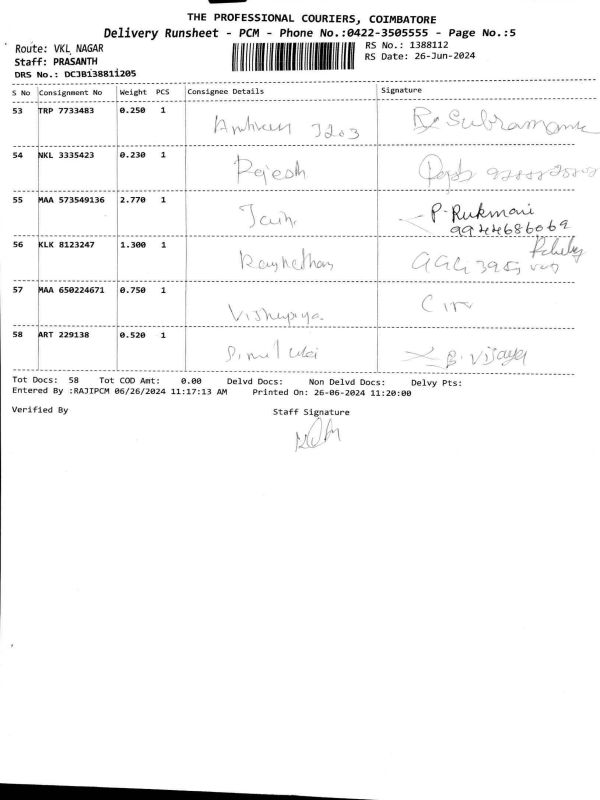 THE PROFESSIONAL COURIERS, COIMBATORE
Delivery Runsheet - PCM - Phone No.:0422-3505555 - Page No.:5
Route: VKL NAGAR RS No.: 1388112
Staff: PRASANTH RS Date: 26-Jun-2024
DRS No.: DCJB13881i205
S No Consignment No Weight PCS Consignee Details Signature
53 TRP 7733483 0.250 1
3203 Subramani
54 NKL 3335423 0.230 1
Rajesh
55 MAA 573549136 2.770 1
Jain P. Rukmani
9944686069
56 KLK 8123247 1.300 1
57 MAA 650224671 0.750 1
Vishnupriya
58 ART 229138 0.520 1
B. Vijaya
Tot Docs: 58 Tot COD Amt: 0.00 Delvd Docs: Non Delvd Docs: Delvy Pts:
Entered By :RAJIPCM 06/26/2024 11:17:13 AM Printed On: 26-06-2024 11:20:00
Verified By Staff Signature